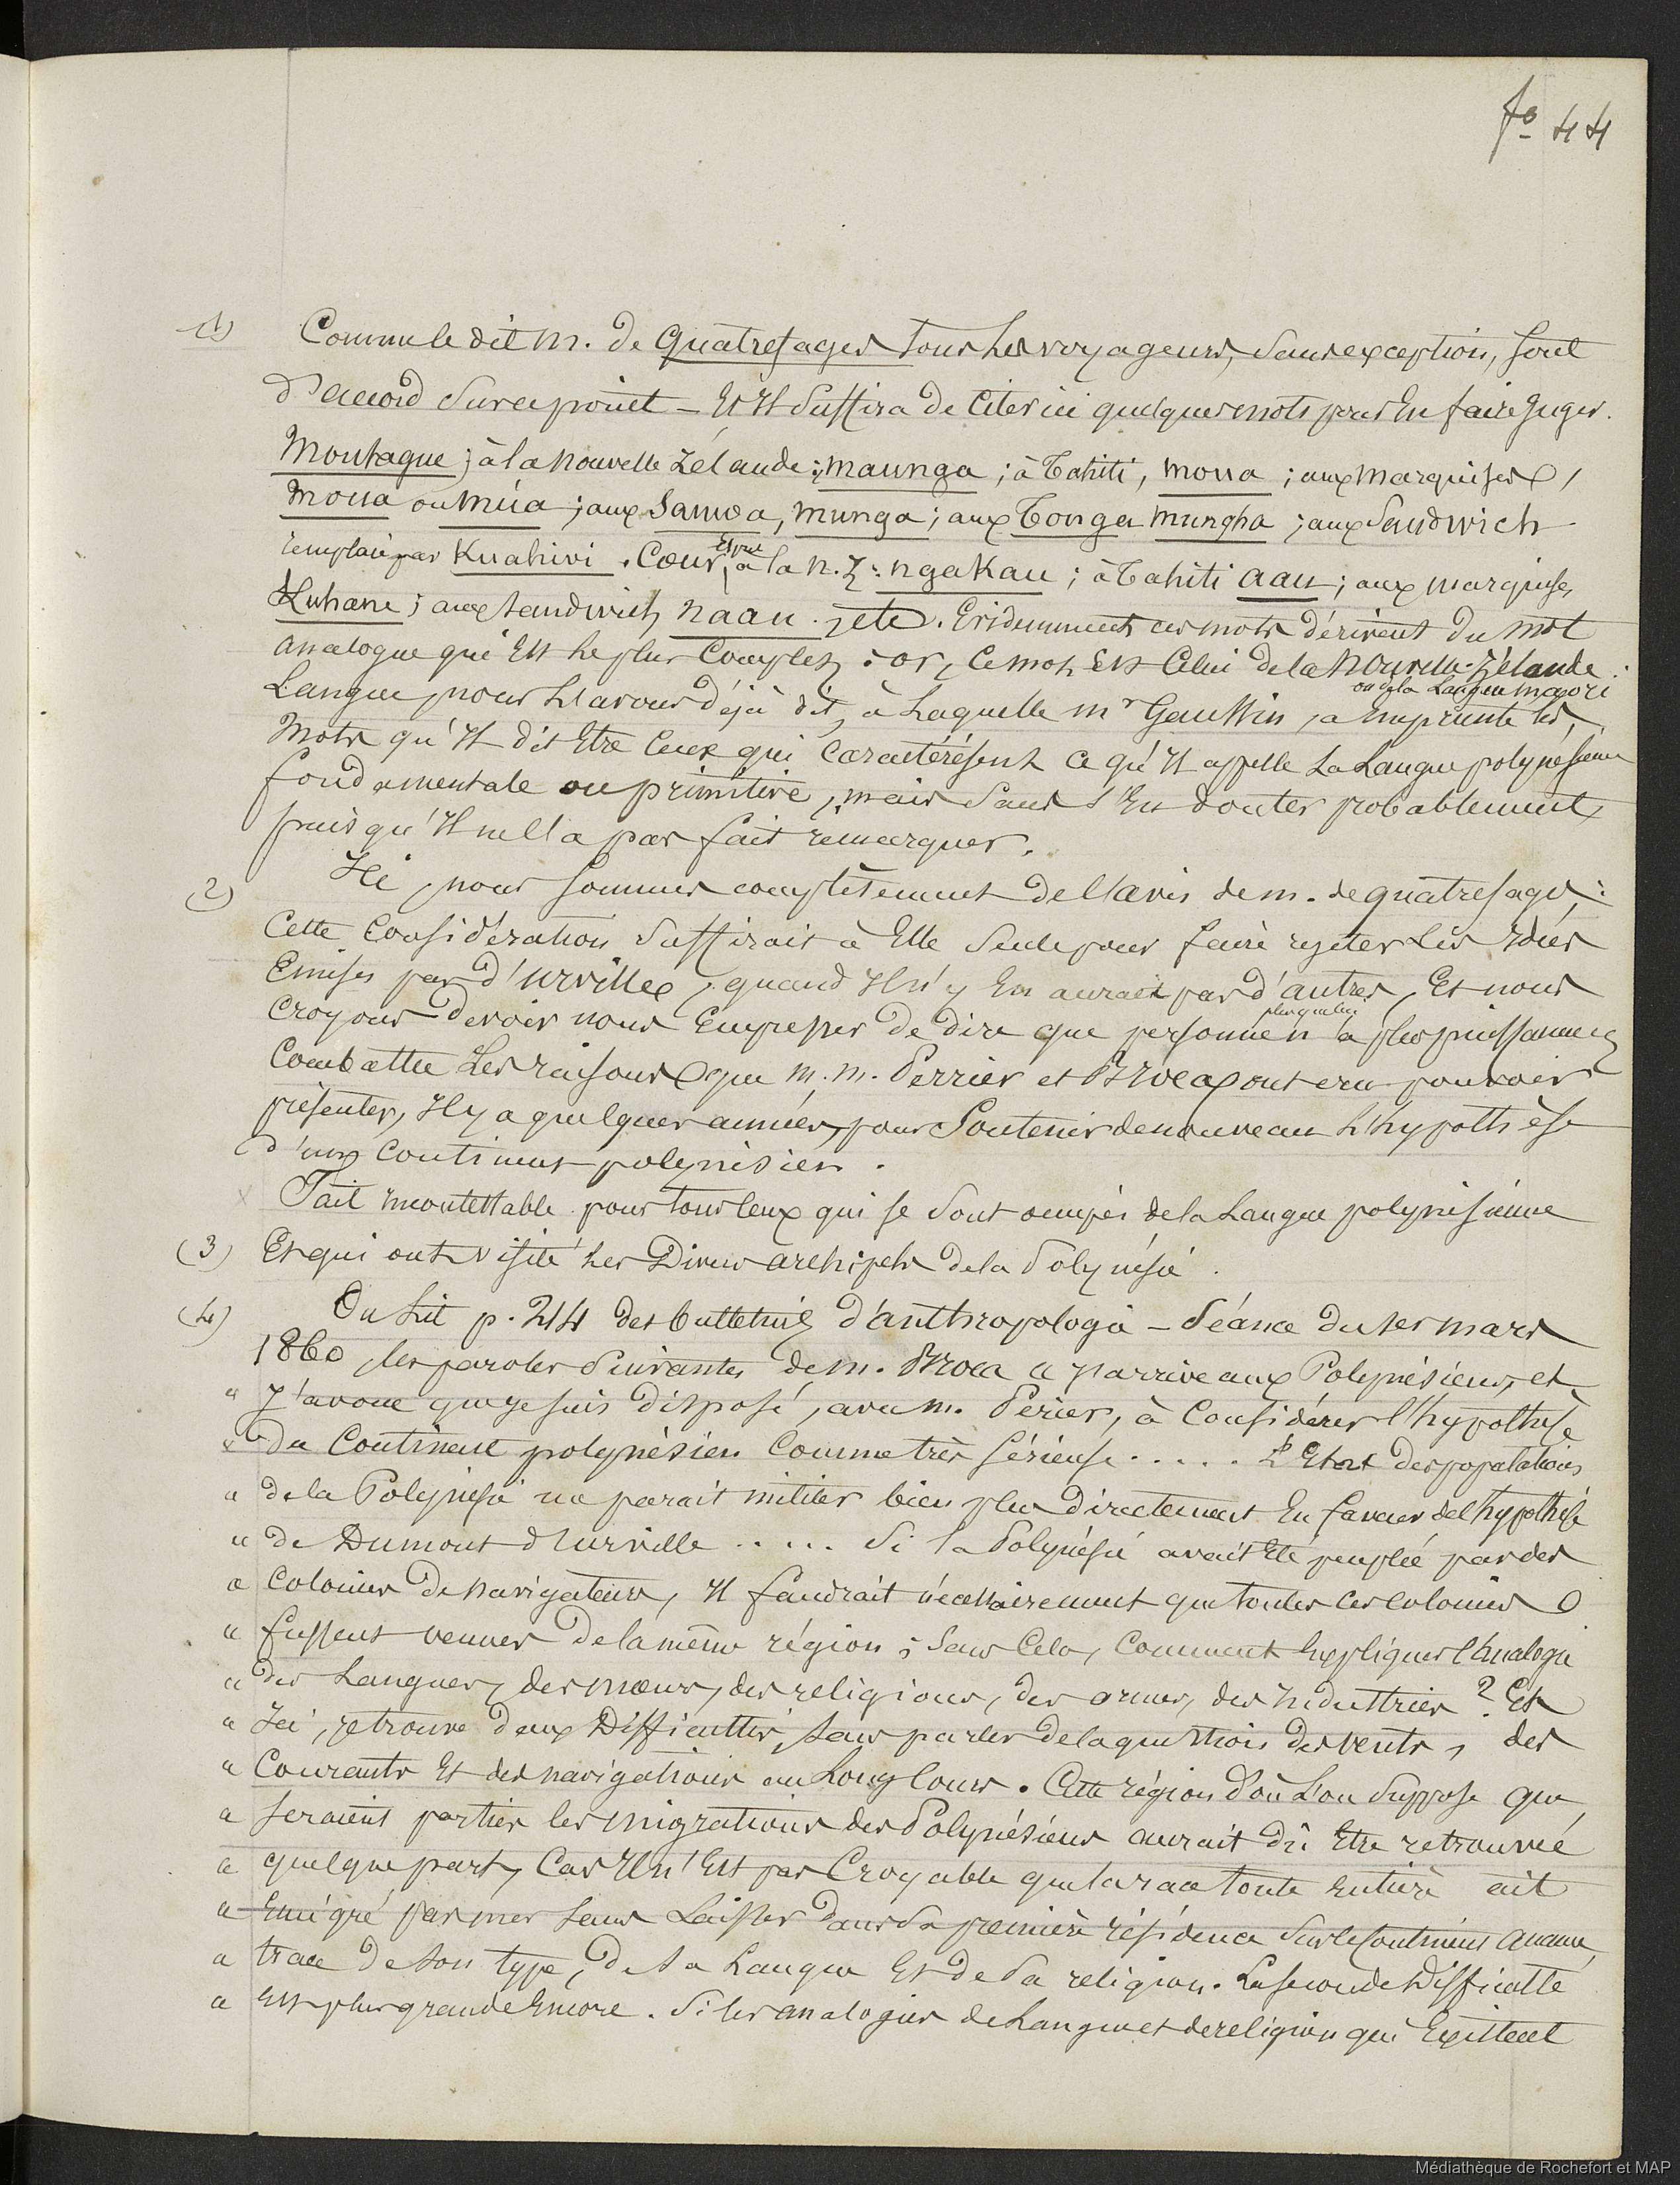 fo 44
(1) Comme le dit M. de Quatrefages tous les voyageurs, sans exception, sont
d'accord sur ce point – Et Il suffira de Citer ici quelques mots pour En faire Juger.
Montagne ; à la Nouvelle Zélande ; maunga ; à Tahiti, moua ; aux Marquises,
moua ou múa ; aux Samoa, munga ; aux Tonga mungha ; aux Sandwich
remplacé par Kuahivi. Coeur, à la N. Z : ngakau ; à Tahiti aau ; aux marquises,
Kuhane ; aux Sandwich, naau. etc. Evidemment ces mots dérivent du mot
analogue qui Est le plus Complet : or, Ce mot Est Celui de la Nouvelle-Zélande.
ou de la Langue maori
Langue, nous l'avons déjà dit, à Laquelle mr Gaussin, a emprunté les,
Mots qu'Il dit Etre Ceux qui Caractérisent Ce qu'Il appelle La Langue polynésienne
fondamentale ou primitive, mais sans s'En douter probablement,
puisqu'Il ne l'a pas fait remarquer.
(2) Ici, nous sommes complètement de l'avis de m. de quatrefages :
Cette Considération suffirait à Elle seule pour faire rejeter Les Idées
Emises par d'Urville, quand Il n'y En aurait pas d'autres, Et nous
plus que lui
Croyons devoir nous Empresser de dire que personne n'a plus puissamment
Combattu Les raisons que m. m. Perrier et Broca ont cru pouvoir
présenter, Il y a quelques années, pour Soutenir de nouveau l'hypothèse
d'un Continent polynésien.
Fait incontestable pour tous Ceux qui se sont occupés de la Langue polynésienne
(3) Et qui ont visité les Divers archipels de la Polynésie.
(4) On Lit p. 244 des bulletins d'anthropologie – Séance du 1er mars
1860, les paroles Suivantes de m. Broca « J'arrive aux Polynésiens, et
« J'avoue que je suis disposé, avec m. Perier, à Considérer l'hypothèse
« Du Continent polynésien Comme très sérieuse ..... L'Etat des populations
« de la Polynésie me parait militer bien plus directement En faveur de l'hypothèse
« de Dumont d'Urville ..... Si la Polynésie avait été peuplée par des
« Colonies de navigateurs, Il faudrait nécessairement que toutes ces colonies
« fussent venues de la même région ; Sans Cela, Comment Expliquer l'Analogie
« des Langues, des moeurs, des religions, des armes, des Industries ? Et
« Ici, je trouve deux Difficultés, sans parler de la question des vents, des
« Courants Et des navigations au Long Cours. Cette région d'où L'on Suppose que
« seraient parties les migrations des Polynésiens aurait dû Etre retrouvée
« quelque part, Car Il n'Est pas Croyable que la race toute Entière ait
« Emigré par mer sans Laisser dans sa première résidence Sur le Continent aucune
« trace de son type, de sa Langue Et de sa religion. La seconde Difficulté
« Est plus grande Encore. Si les analogies de Langue et de religion qui Existent
Médiathèque de Rochefort et MAP